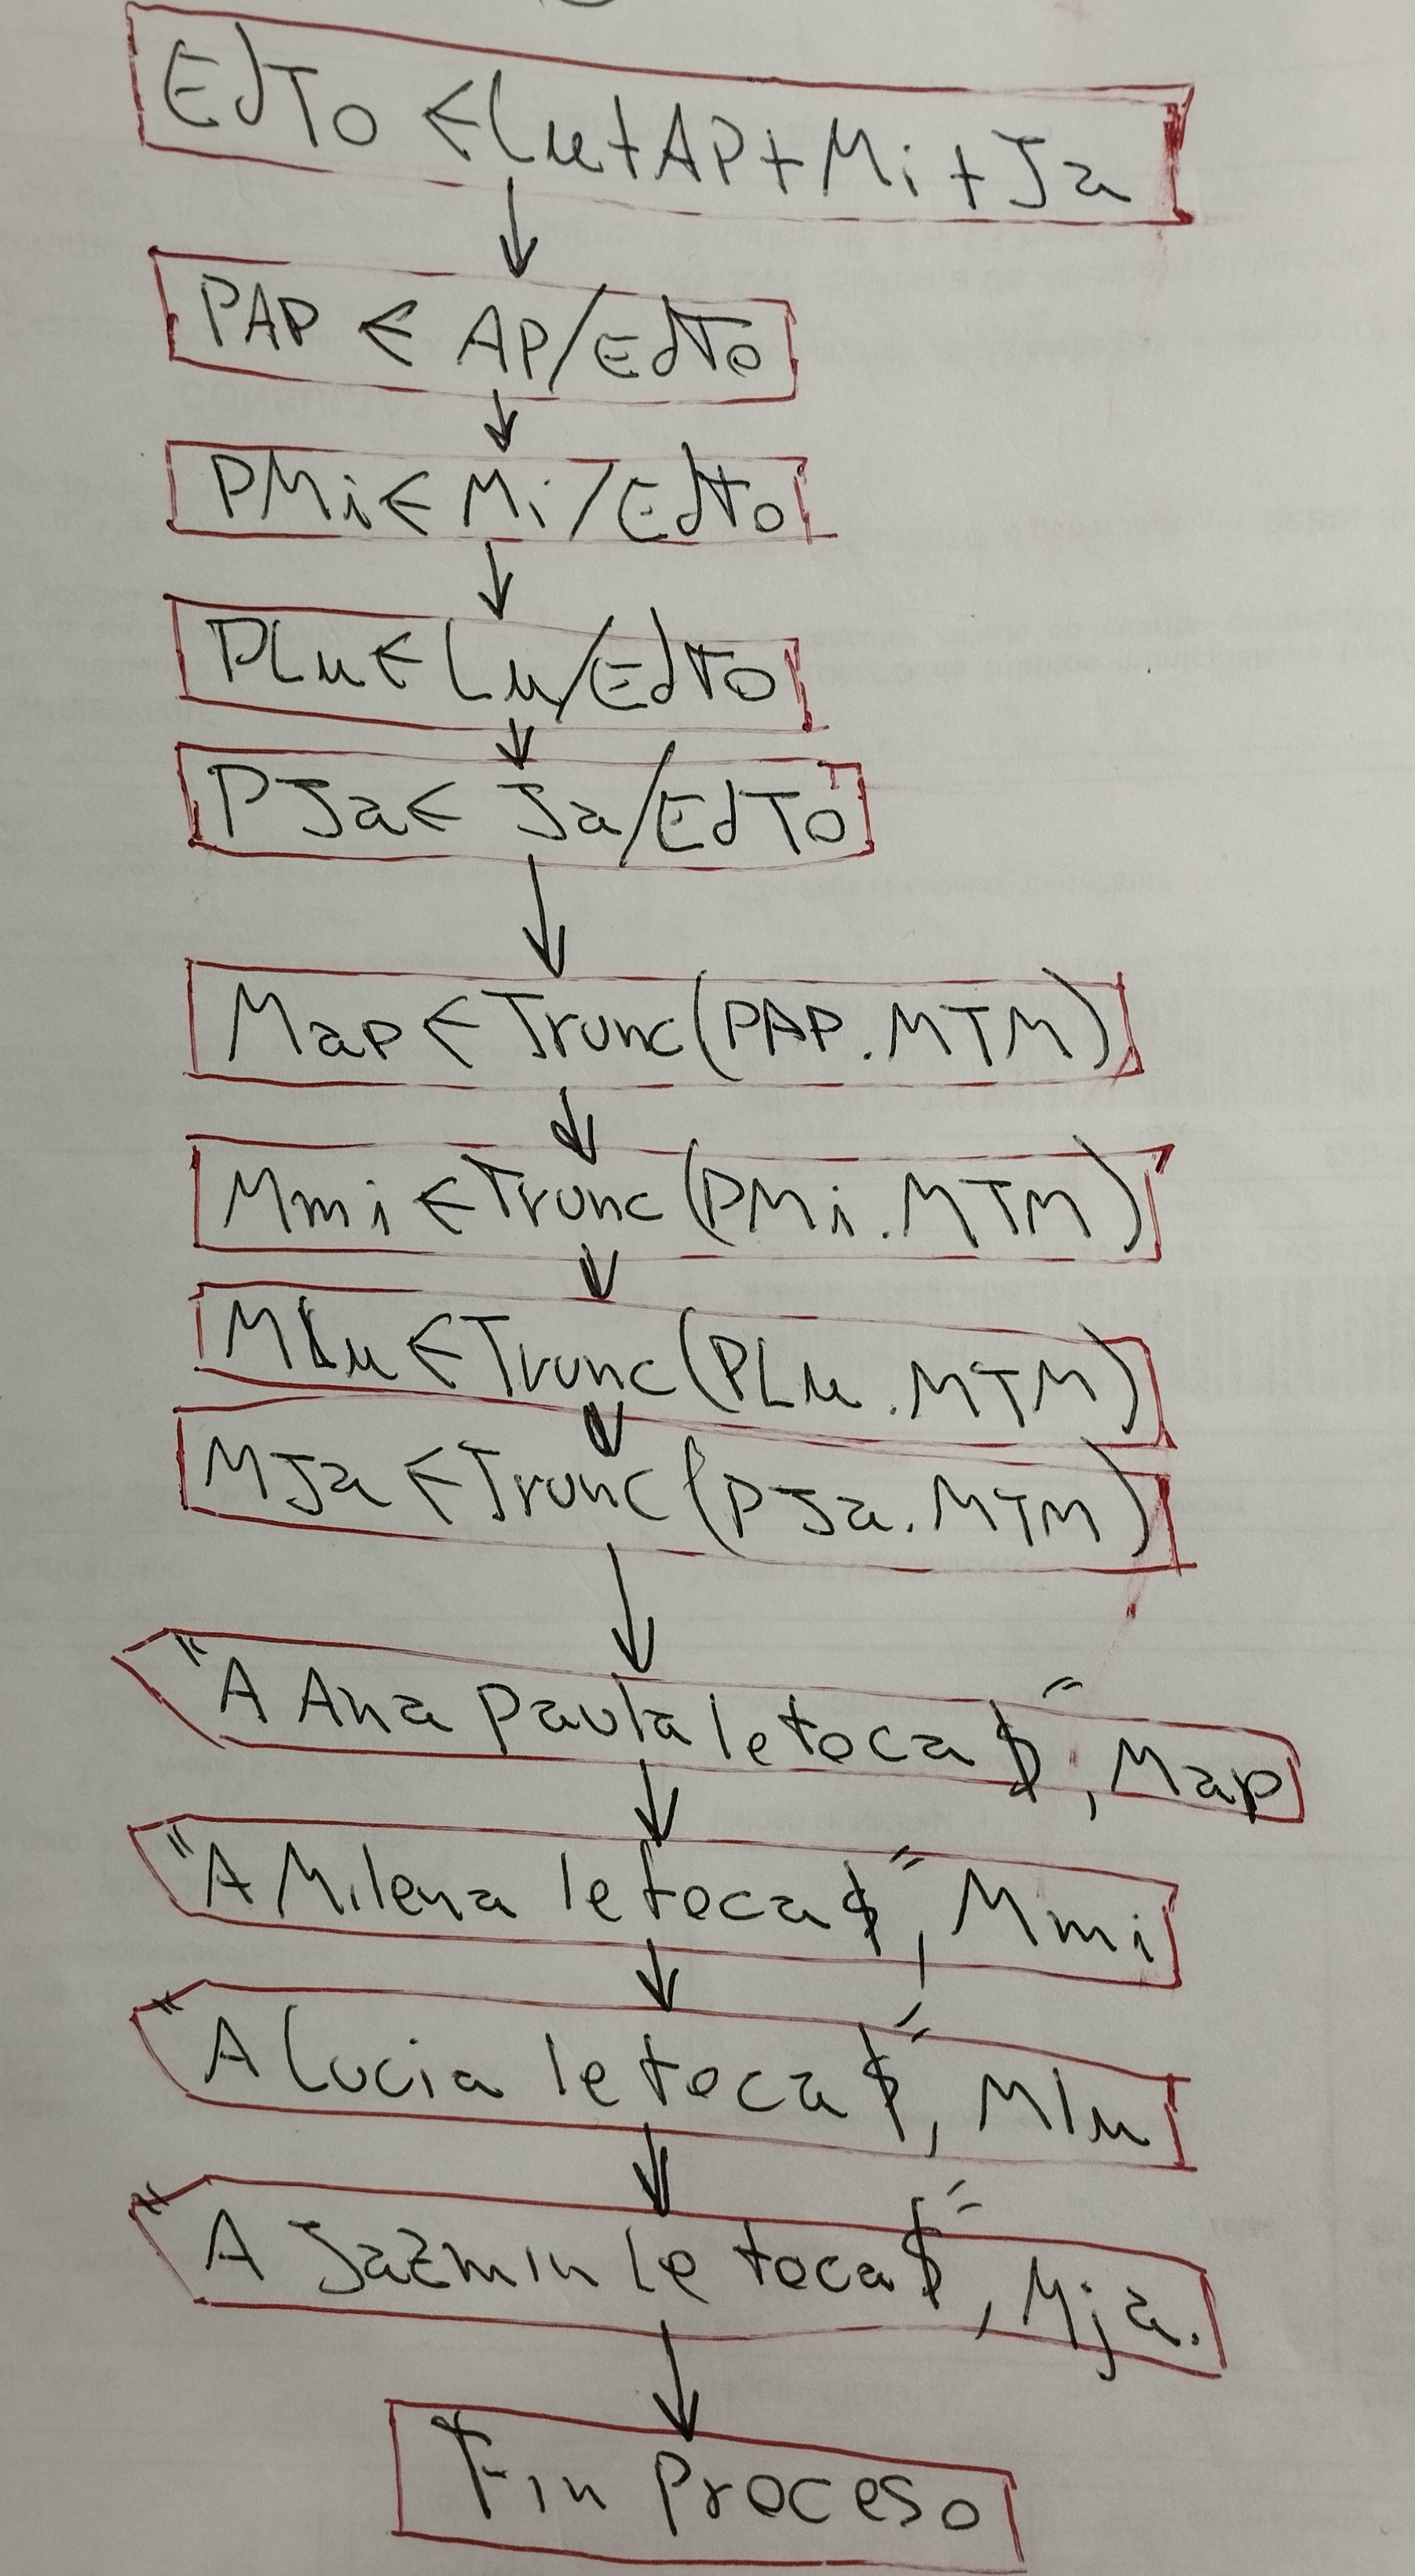 EdTo ← Lu + AP + Mi + Ja
PAP ← AP/EdTo
PMi ← Mi/EdTo
PLu ← Lu/EdTo
PJa ← Ja/EdTo
Map ← Trunc(PAP.MTM)
Mmi ← Trunc(PMi.MTM)
MLu ← Trunc(PLu.MTM)
MJa ← Trunc(PJa.MTM)
"A Ana Paula le toca $", Map
"A Milena le toca $", Mmi
"A Lucia le toca $", Mlu
"A Jazmin le toca $", Mja.
Fin Proceso